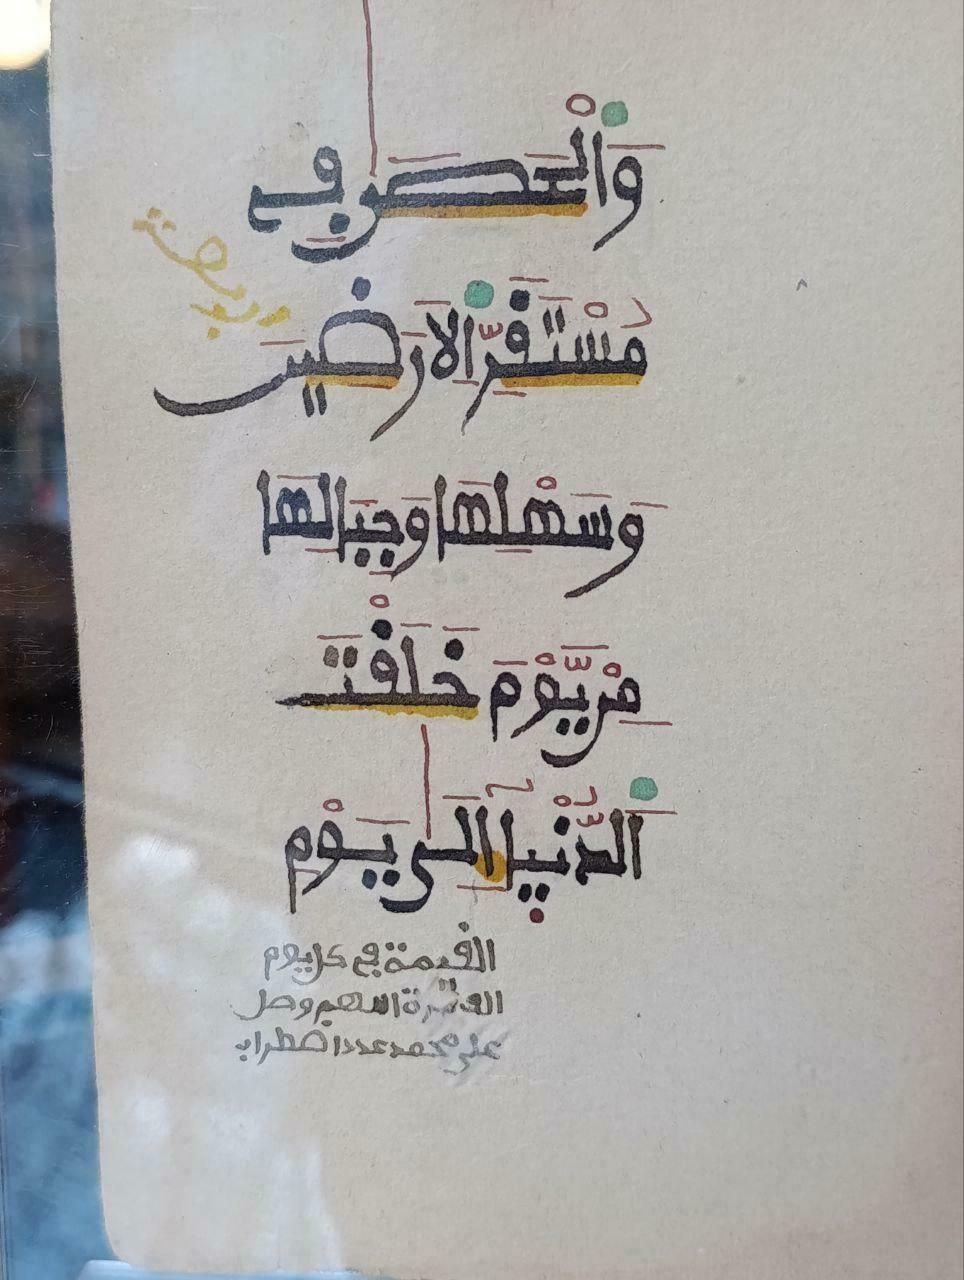 وَالْحَصَى فِي
مُسْتَقَرِّ الارَضِينَ
وَسَهْلِهَا وَجِبَالِهَا
مِنْ يَّوْمَ خَلَقْتَ
الدُّنْيَآ إِلَى يَوْمِ
القيمة في كل يوم
الف مرة اللهم وصل
على محمد عدد اضطراب